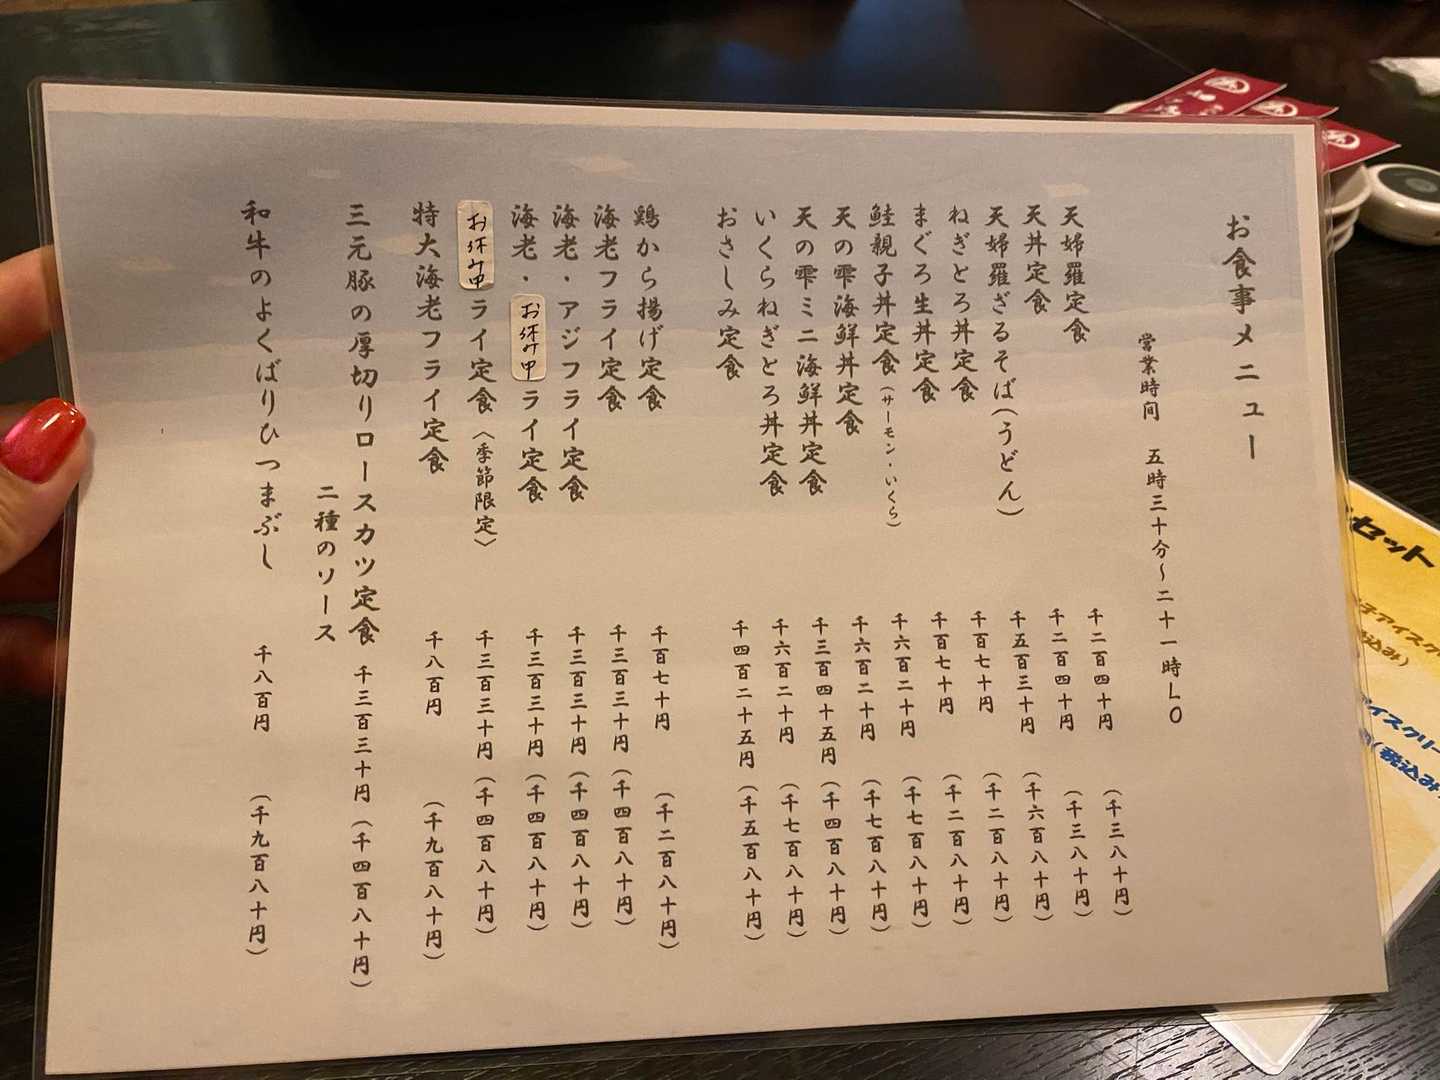 お食事メニュー
営業時間 五時三十分〜二十一時LO
天婦羅定食 千二百四十円 (千三八十円)
天丼定食 千二百四十円 (千三八十円)
天婦羅ざるそば(うどん) 千五百三十円 (千六百八十円)
ねぎとろ丼定食 千百七十円 (千二百八十円)
まぐろ生丼定食 千百七十円 (千二百八十円)
鮭親子丼定食(サーモン・いくら) 千六百二十円 (千七百八十円)
天の雫海鮮丼定食 千六百二十円 (千七百八十円)
天の雫ミニ海鮮丼定食 千三百四十五円 (千四百八十円)
いくらねぎとろ丼定食 千六百二十円 (千七百八十円)
おさしみ定食 千四百二十五円 (千五百八十円)
鶏から揚げ定食 千百七十円 (千二百八十円)
海老フライ定食 千三百三十円 (千四百八十円)
海老・アジフライ定食 千三百三十円 (千四百八十円)
海老・お休み中ライ定食 千三百三十円 (千四百八十円)
お休み中ライ定食〈季節限定〉 千三百三十円 (千四百八十円)
特大海老フライ定食 千八百円 (千九百八十円)
三元豚の厚切りロースカツ定食 千三百三十円 (千四百八十円)
二種のソース
和牛のよくばりひつまぶし 千八百円 (千九百八十円)
セット
アイスク
込み)
アイスクリー
(税込み